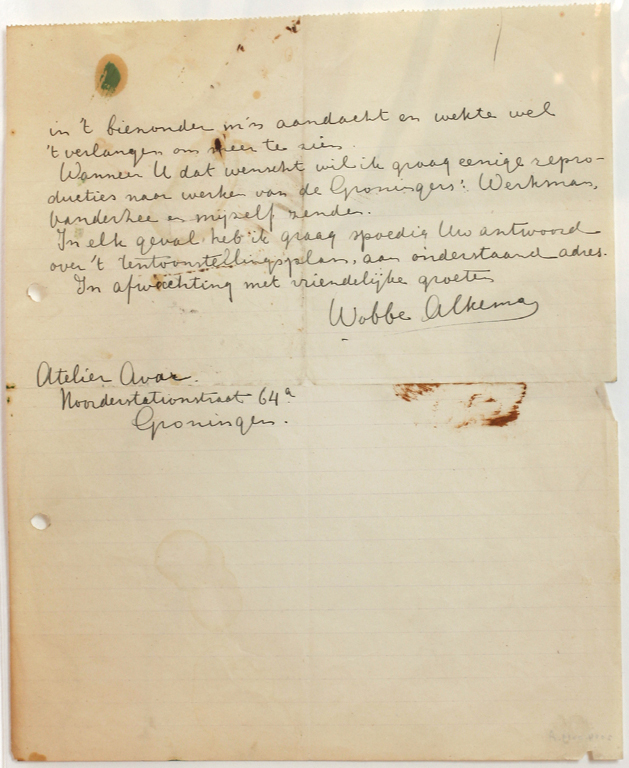 in 't biezonder m'n aandacht en wekte wel
't verlangen om meer te zien.
Wanneer U dat wenscht wil ik graag eenige repro-
ducties naar werken van de Groningers: Werkman,
vanderZee en myself zenden.
In elk geval heb ik graag spoedig Uw antwoord
over 't tentoonstellingsplan, aan onderstaand adres.
In afwachting met vriendelijke groeten
Wobbe Alkema
Atelier Avax.
Noorderstationstraat 64a
Groningen.